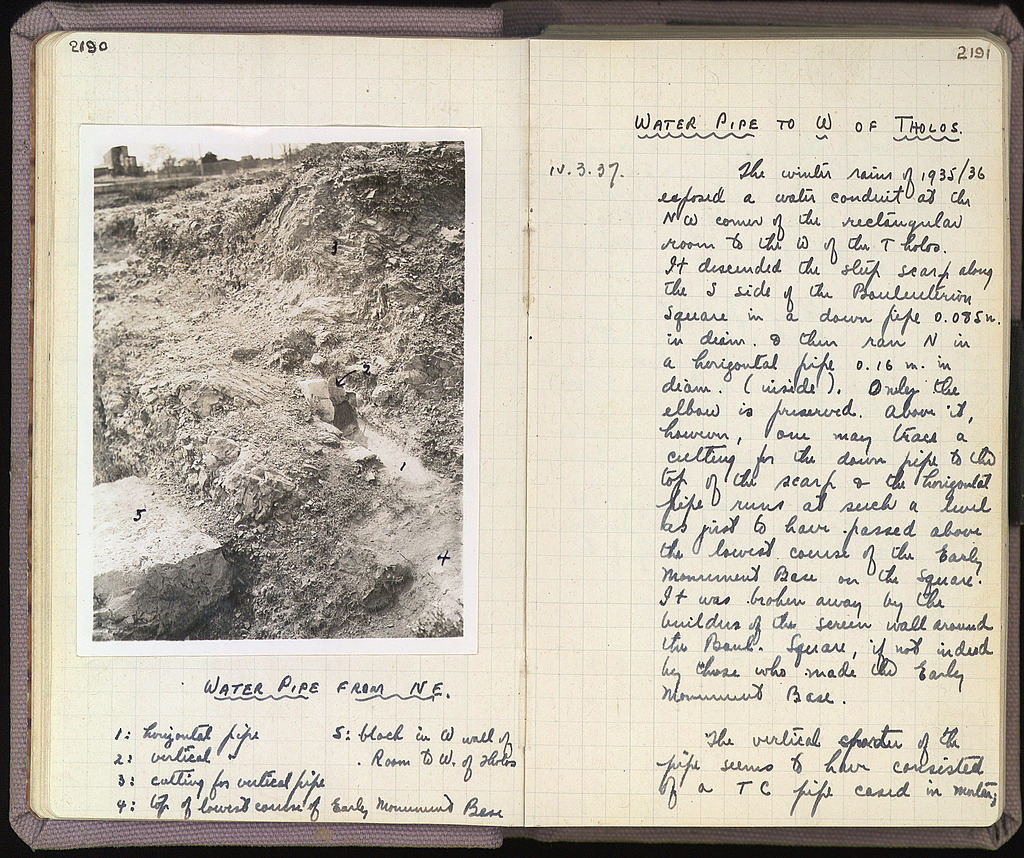 2190
3
2
1
5
4
WATER PIPE FROM NE.
1: horizontal pipe
2: vertical "
3: cutting for vertical pipe
4: top of lowest course of Early Monument Base
5: block in W wall of
Room to W. of Tholos
2191
WATER PIPE TO W OF THOLOS.
IV.3.37.
The winter rains of 1935/36
exposed a water conduit at the
NW corner of the rectangular
room to the W of the Tholos.
It descended the steep scarp along
the S side of the Bouleuterion
Square in a down pipe 0.085 m.
in diam. & then ran N in
a horizontal pipe 0.16 m. in
diam. (inside). Only the
elbow is preserved. Above it,
however, one may trace a
cutting for the down pipe to the
top of the scarp & the horizontal
pipe runs at such a level
as just to have passed above
the lowest course of the Early
Monument Base on the Square.
It was broken away by the
builders of the screen wall around
the Boul. Square, if not indeed
by those who made the Early
Monument Base.
The vertical of the
pipe seems to have consisted
of a TC pipe cased in mortar;